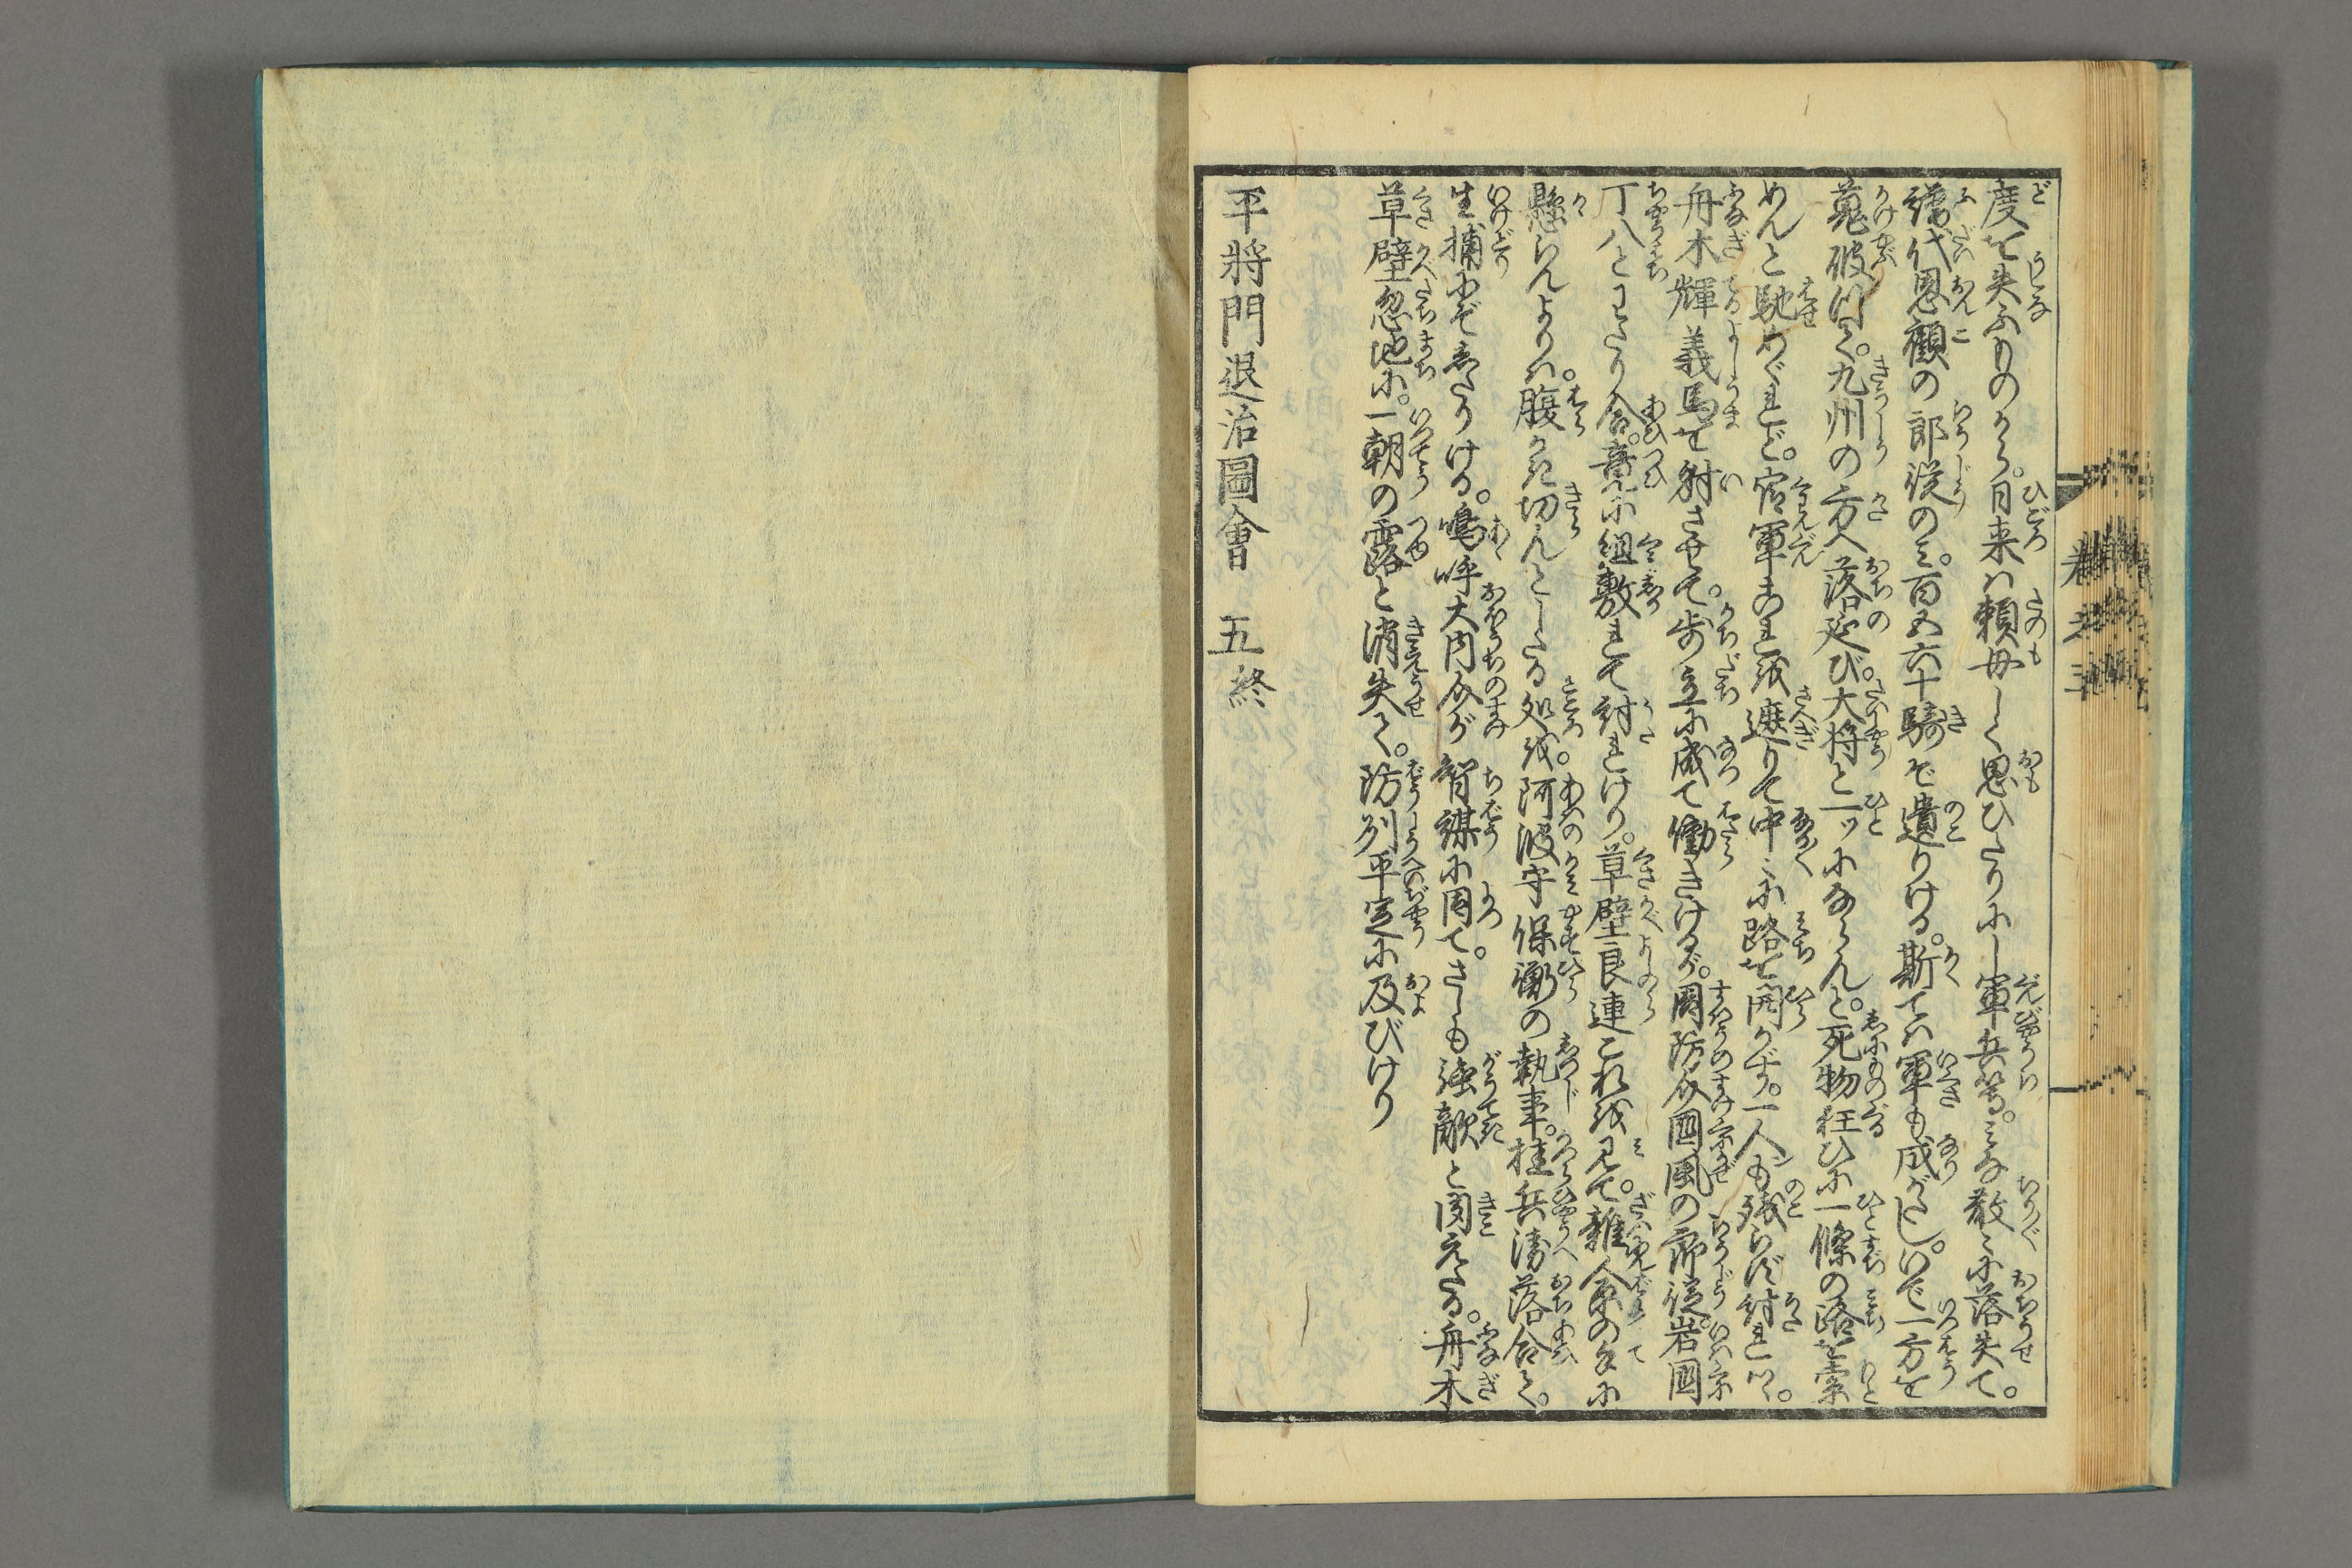 度を失ふものから。日来は頼母しく思ひたりし軍兵等。みな散々に落失て。
譜代恩顧の郎従のみ。百五六十騎ぞ遺りける。斯ては軍も成がたし。いで一方を
蒐破つて。九州の方へ落延び。大将と一ツにならんと。死物狂ひに一條の路を索
めんと馳めぐれど。官軍これを遮りて中々に路を開かず。一人も残らず討れつゝ。
舟木輝義馬を射させて。歩立に成て働きけるが。周防介国風の郎従。岩国
丁八とわたり合。竟に組敷れて討れけり。草壁良連これを見て。雑人原の手に
懸らんよりは。腹かき切んとしたる処を。阿波守保衡の執事。桂兵衛落合て。
生捕にぞしたりける。嗚呼大内介が智謀に因て。さしも強敵と聞えたる。舟木
草壁忽地に。一朝の露と消失て。防州平定に及びけり
平將門退治圖會　五終